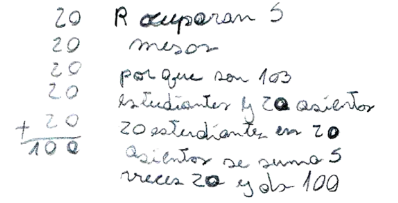 20 R ocuparan 5
20 mesas
20
20 porque son 103
20 estudiantes y 20 asientos
+ 20 20 estudiantes en 20
100 asientos se suma 5
vreces 20 y da 100